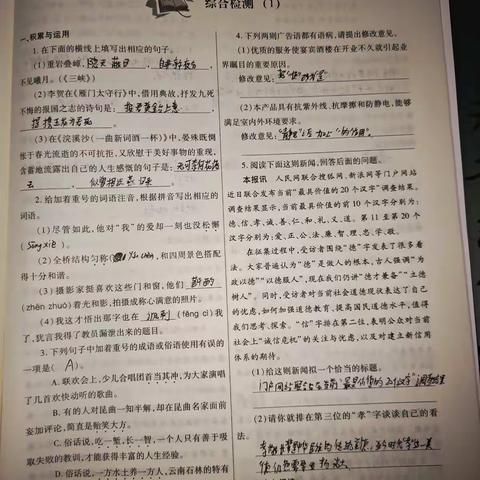 综合检测（1）
一、积累与运用
1. 在下面的横线上填写出相应的句子。
(1)重岩叠嶂，隐天蔽日，自非亭午夜分，
不见曦月。（《三峡》）
(2)李贺在《雁门太守行》中，借用典故，抒发九死
不悔的报国之志的诗句是：报君黄金台上意，
提携玉龙为君死。
(3)在《浣溪沙(一曲新词酒一杯)》中，晏殊既惆
怅于春光流逝的不可抗拒，又欣慰于美好事物的重现，
含蓄地流露出自己的人生感慨的句子是：无可奈何花落
去，似曾相识燕归来。
2. 给加着重号的词语注音，根据拼音写出相应的
词语。
(1)尽管如此，他对“我”的爱却一刻也没松懈
(sōng xiè)。
(2)全桥结构匀称( yún chèn)，和四周景色搭配
得十分和谐。
(3)摄影家挺喜欢这些门和窗，他们斟酌
(zhēn zhuó)着光和影，拍摄成称心满意的照片。
(4)我这才悟出那字也在讽刺(fěng cì)我
了，犹言我得了教员漏泄出来的题目。
3. 下列句子中加着重号的成语或俗语使用有误的
一项是( A )。
A. 联欢会上，少儿合唱团首当其冲，为大家演唱
了几首欢快动听的歌曲。
B. 有的人对昆曲一知半解，却在昆曲名家面前
妄加评论，简直是贻笑大方。
C. 俗话说，吃一堑，长一智，一个人只有善于吸
取失败的教训，才能获得丰富的人生经验。
D. 俗话说，一方水土养一方人，云南石林的特有
4. 下列两则广告语都有语病，请提出修改意见。
(1)优质的服务使宴宾酒楼在开业不久就引起业
界瞩目的重要原因。
修改意见：
(2)本产品具有抗紫外线、抗摩擦和防静电，能够
满足室内外环境要求。
修改意见：
5. 阅读下面这则新闻，回答后面的问题。
本报讯 人民网联合搜狐网、新浪网等门户网站
近日联合发布当前“最具价值的20个汉字”调查结果。
调查结果显示，当前最具价值的前10个汉字分别为：
德、信、孝、诚、善、仁、和、礼、义、道。第11至第20个
汉字分别为：爱、正、公、法、廉、智、理、忠、学、敬。
在征集过程中，受访者围绕“德”字发表了很多看
法。大家普遍认为“德”是做人的根本，古人强调“为
政以德”“以德服人”，现在我们仍讲“德才兼备”“立德
树人”。同时，受访者对当前社会道德现状表达了自己
的忧患，如何加强道德教育、提高国民道德水平，值得
我们思考、探索。“信”字排在第二位，表明公众对当前
社会上“诚信危机”的关注与忧虑，以及对建立新信用
体系的期待。
(1)给这则新闻拟一个恰当的标题。
(2)请你就排在第三位的“孝”字谈谈自己的看
法。